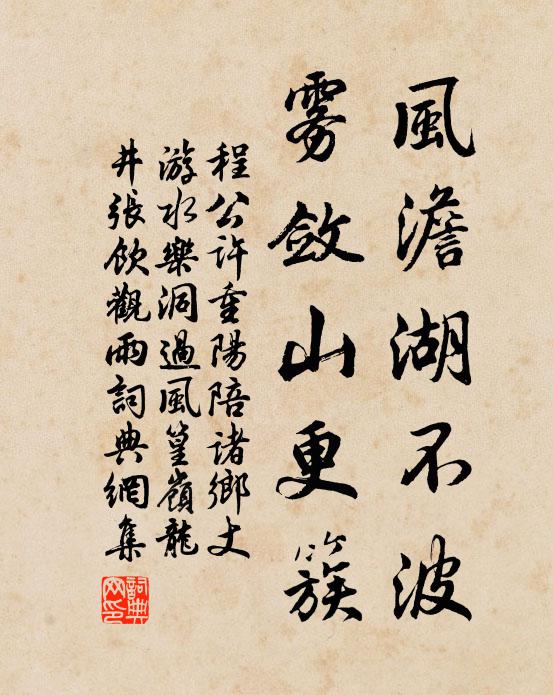 風澹湖不波
雾斂山更簇
程公許重陽陪诸鄉丈
游水樂洞過風篁嶺龍
井張飲觀雨詞典網集
詞典
网印